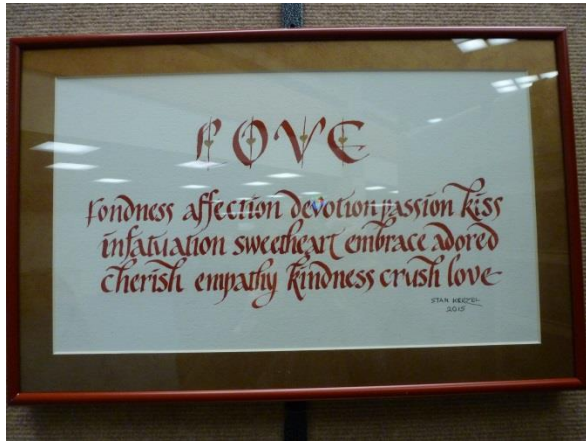 LOVE
fondness affection devotion passion kiss
infatuation sweetheart embrace adored
cherish empathy kindness crush love
STAN